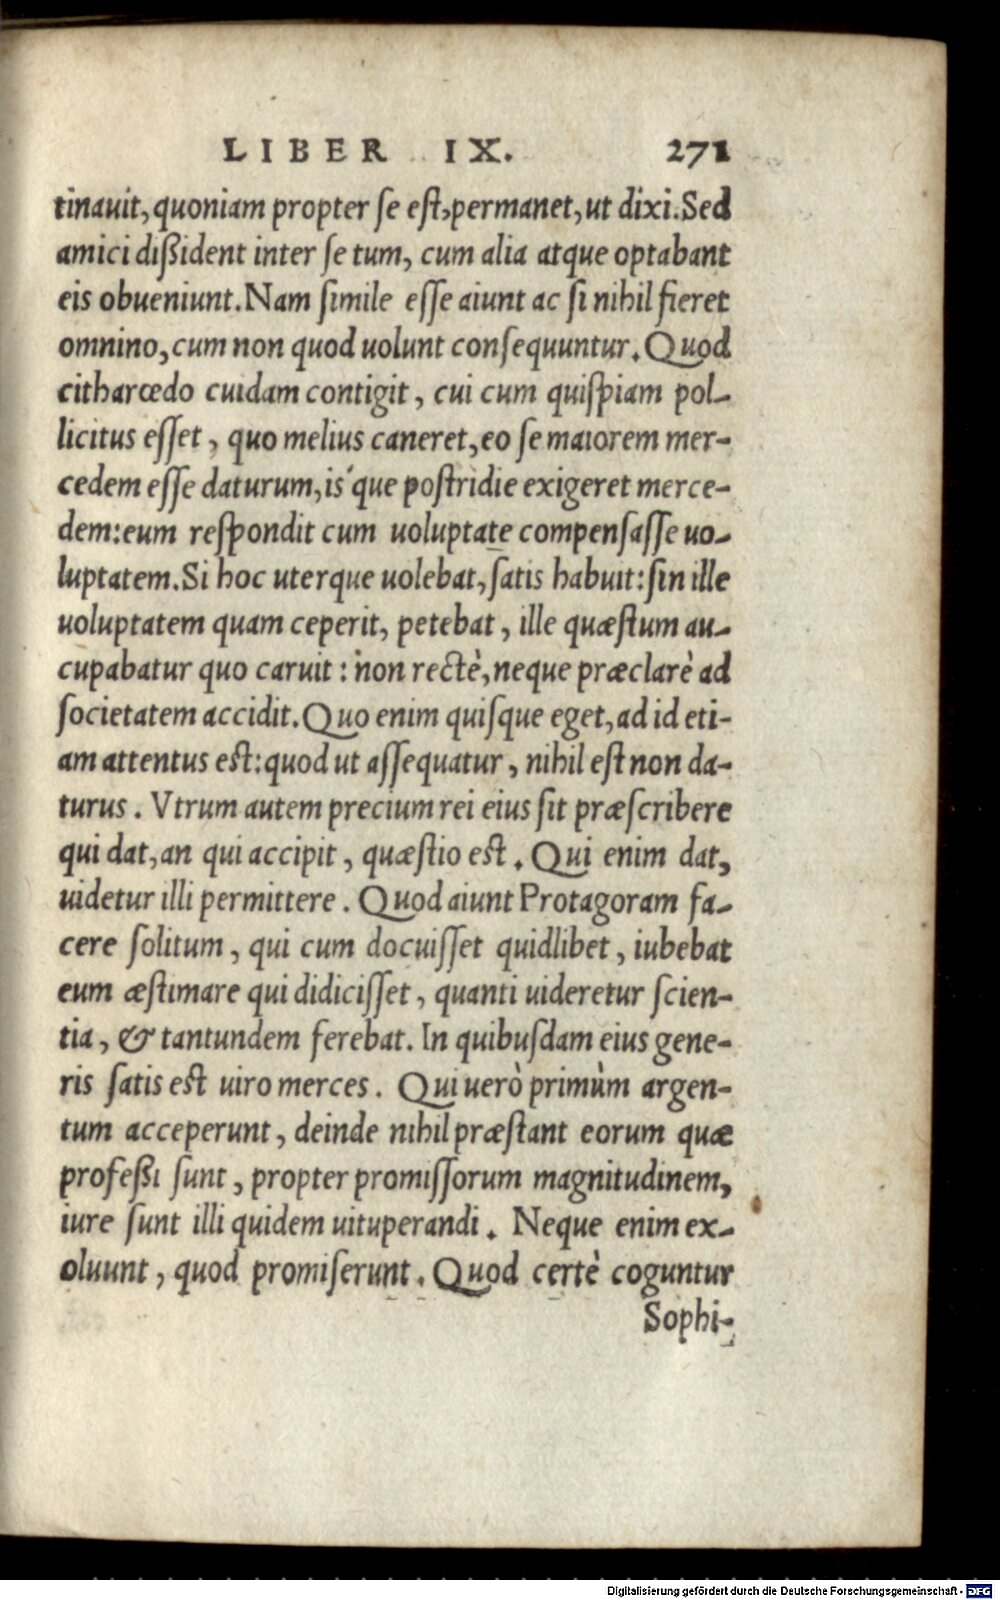 LIBER IX. 271
tinauit, quoniam propter ſe eſt, permanet, ut dixi. Sed
amici dißident inter ſe tum, cum alia atque optabant
eis obueniunt. Nam ſimile eſſe aiunt ac ſi nihil fieret
omnino, cum non quod uolunt conſequuntur. Quod
citharœdo cuidam contigit, cui cum quiſpiam pol-
licitus eſſet, quo melius caneret, eo ſe maiorem mer-
cedem eſſe daturum, is´que poſtridie exigeret merce-
dem: eum reſpondit cum uoluptate compenſaſſe uo-
luptatem. Si hoc uterque uolebat, ſatis habuit: ſin ille
uoluptatem quam ceperit, petebat, ille quæſtum au-
cupabatur quo caruit: non rectè, neque præclarè ad
ſocietatem accidit. Quo enim quiſque eget, ad id eti-
am attentus est: quod ut aſſequatur, nihil eſt non da-
turus. Vtrum autem precium rei eius ſit præſcribere
qui dat, an qui accipit, quæſtio est. Qui enim dat,
uidetur illi permittere. Quod aiunt Protagoram fa-
cere ſolitum, qui cum docuiſſet quidlibet, iubebat
eum æſtimare qui didiciſſet, quanti uideretur ſcien-
tia, & tantundem ferebat. In quibuſdam eius gene-
ris ſatis est uiro merces. Qui uerò primùm argen-
tum acceperunt, deinde nihil præſtant eorum quæ
profeßi ſunt, propter promiſſorum magnitudinem,
iure ſunt illi quidem uituperandi. Neque enim ex-
oluunt, quod promiſerunt. Quod certè coguntur
Sophi-
Digitalisierung gefördert durch die Deutsche Forschungsgemeinschaft - DFG